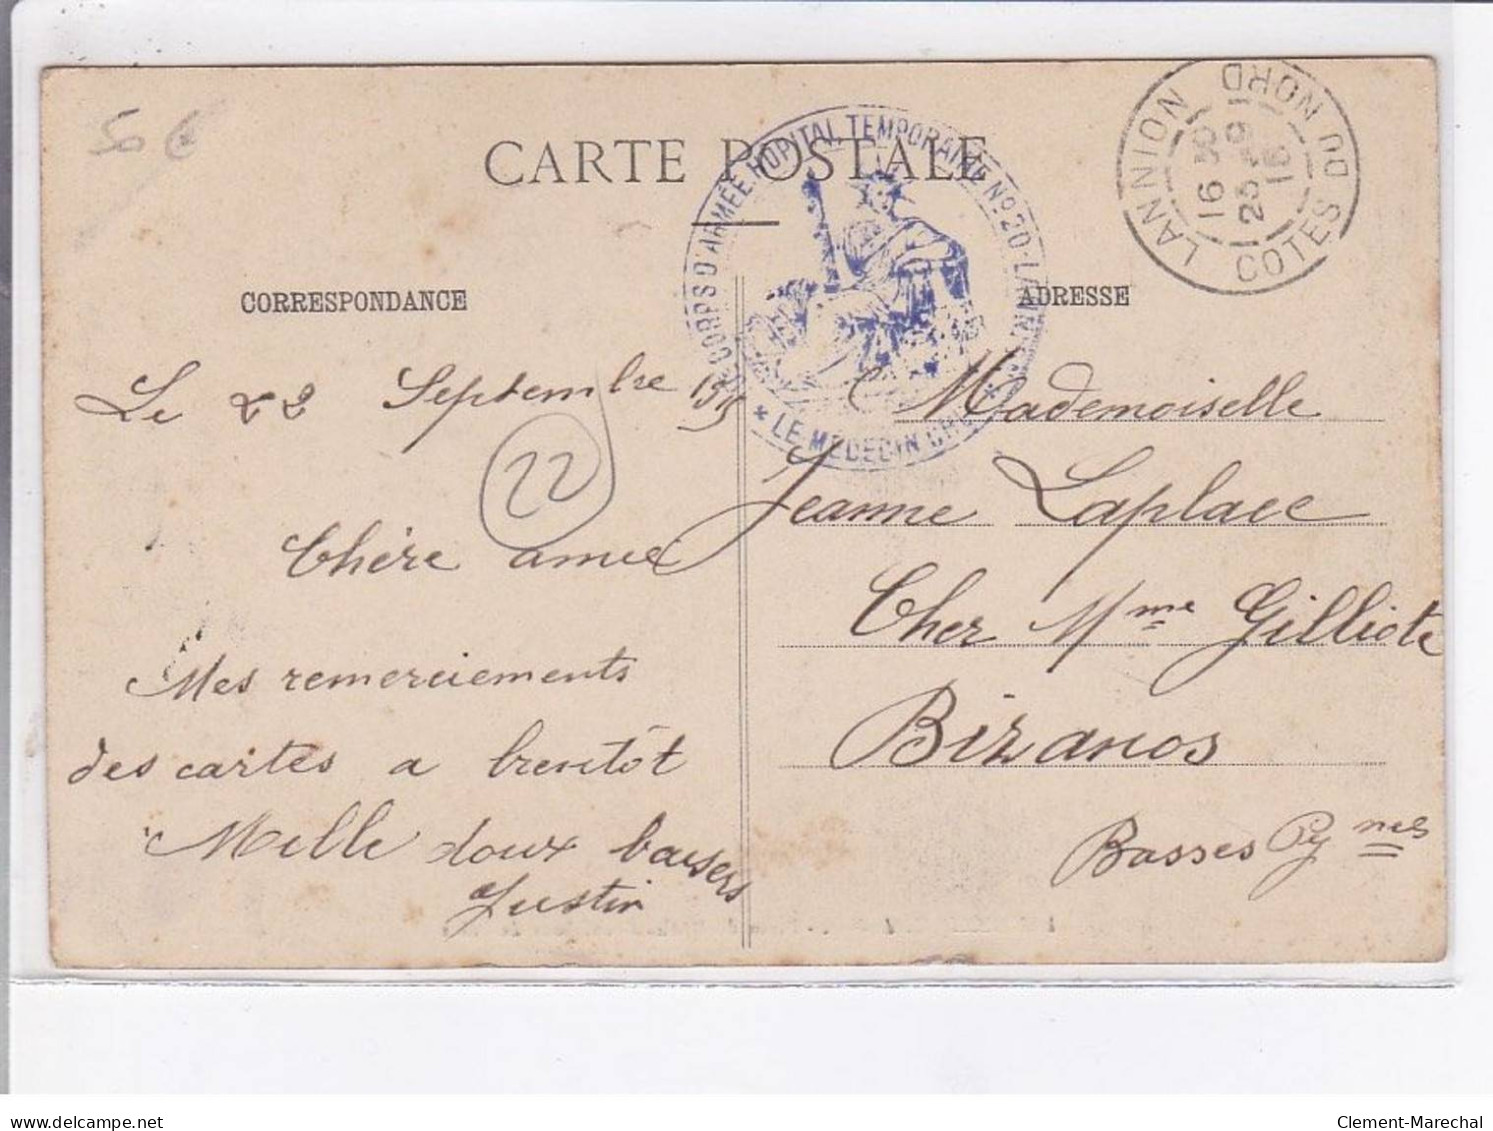 50 €
CARTE POSTALE
CORPS D'ARMÉE. HOPITAL TEMPORAIRE Nº 20. LANNION
* LE MÉDECIN CHEF *
LANNION
COTES DU NORD
16 30
25 9
16
CORRESPONDANCE
ADRESSE
Le 22 Septembre
22
Chère amie
Mes remerciements
des cartes a bientôt
Mille doux baisers
Justin
Mademoiselle
Jeanne Laplace
Chez Mme Gilliote
Bizanos
Basses Pynées
delcampe.net
Clement-Marechal